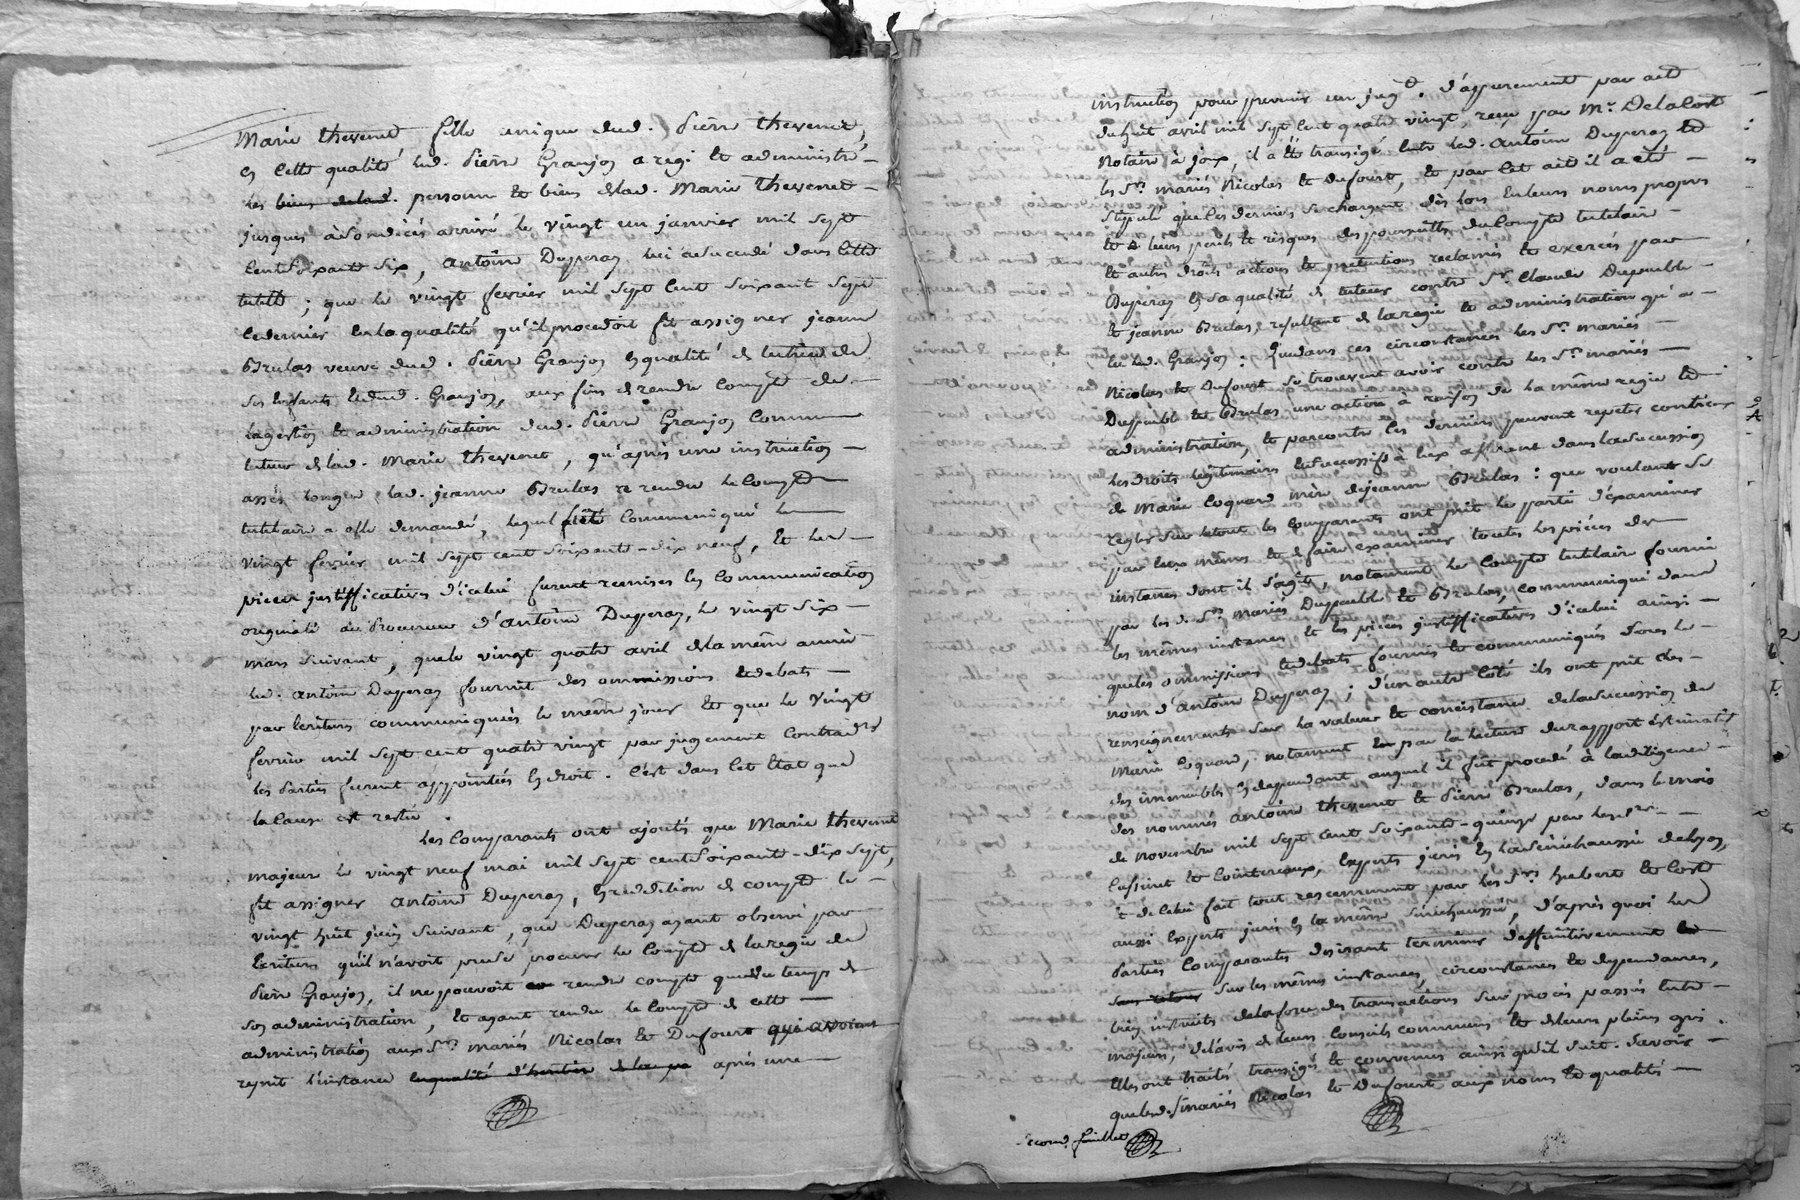 Marie thevenet fille unique dud. Pierre thevenet,
en cette qualité led. Pierre Granjon a regi et administré
les biens delad. personne et biens delad. Marie thevenet
jusques à son décés arrivé le vingt un janvier mil sept
cent soixante six, antoine Duperay lui a succedé dans cette
tutelle ; que le vingt fevrier mil sept cent soixante sept
ce dernier en la qualité qu'il procedoit fit assigner jeanne
Brulas veuve dud. Pierre Granjon en qualité de tutrice de
ses enfants et dud. Granjon, aux fins de rendre compte de
la gestion et administration dud. Pierre Granjon comme
tuteur delad. Marie thevenet, qu'après une instruction
assés longue lad. jeanne Brulas a rendu le compte
tutelaire a elle demandé, lequel fut communiqué le
vingt fevrier mil sept cent soixante-dix neuf, et les
pieces justifficatives d'icelui furent remises en communication
originale au Procureur d'antoine Duperay, le vingt six
mars suivant, que le vingt quatre avril de la même année
led. antoine Duperay fournit des ommissions et debats
par ecritures communiquées le même jour et que le vingt
fevrier mil sept cent quatre vingt par jugement contradre
les Parties furent appointées en droit. C'est dans cet etat que
la cause est restée.
les comparants ont ajouté que Marie thevenet
majeure le vingt neuf mai mil sept cent soixante-dix sept,
fit assigner antoine Duperay, en reddition de compte le
vingt huit juin suivant, que Duperay ayant observé par
ecritures qu'il n'avoit pu se procurer le compte de la regie de
Pierre Granjon, il ne pouvoit rendre compte que du temps de
son administration, et ayant rendu le compte de cette
administration aux Srs mariés Nicolas et Dufourt qui avoient
reprit l'instance en qualité d'heritier de la après une
instruction pour parvenir un jugt. d'appurement par acte
du huit avril mil sept cent quatre vingt, reçu par Mr. Delacort
Notaire à joux, il a été transigé entre led. antoine Duperay et
les Srs mariés Nicolas et Dufourt, et par cet acte il a été
stipulé que les derniers se chargent dès lors en leurs noms propres
et à leurs perils et risques des poursuittes du compte tutelaire
et autres droits actions et pretentions reclamés et exercés par
Duperay en sa qualité de tuteur contre Sr. Claude Dupeuble
et jeanne Brulas, resultant de la regie et administration qu'a
eu led. Granjon : que dans ces circonstances les Srs mariés
Nicolas et Dufourt se trouvent avoir contre les Srs mariés
Dupeuble et Brulas une action à raison de la même regie et
administration, et par contre les derniers peuvent repeter contr'eux
les droits legitimaires et successifs à eux afferant dans la succession
de Marie Coquard mère de jeanne Brulas : que voulant se
regler sur le tout les comparants ont prit le parti d'examiner
par eux mêmes et de faire examiner toutes les pièces des
instances dont il s'agit, notament le compte tutelaire fourni
par les d. Srs mariés Dupeuble et Brulas, communiqué dans
les mêmes instances et les pieces justifficatives d'icelui ainsi
que les ommissions et debats fournis et communiqués sous le
nom d'antoine Duperay ; d'un autre coté ils ont prit des
renseignements sur la valeur et concistance de la succession de
Marie Coquard, notament par la lecture du rapport estimatif
des immeubles en dependant auquel il fut procedé à la diligence
des nommés antoine thevenet et Pierre Brulas, dans le mois
de novembre mil sept cent soixante-quinze par les srs
Cussinet et Cointereaux, experts jurés en la sénéchaussée de lyon,
et de celui fait tout rescemment par les Srs hubert et Cort
aussi experts jurés en la même sénéchaussée, d'après quoi les
Parties comparantes desirant terminer deffinitivement
sans retour sur les mêmes instances, circonstances et dependances,
bien instruits de la force des transactions sur procès passés entre
majeurs, de l'avis de leurs conseils communs et de leurs pleins gré
elles ont traité transigé et convenu ainsi qu'il suit. Savoir
que les d. Srs mariés Nicolas et Dufourt aux noms et qualités
Second feuillet